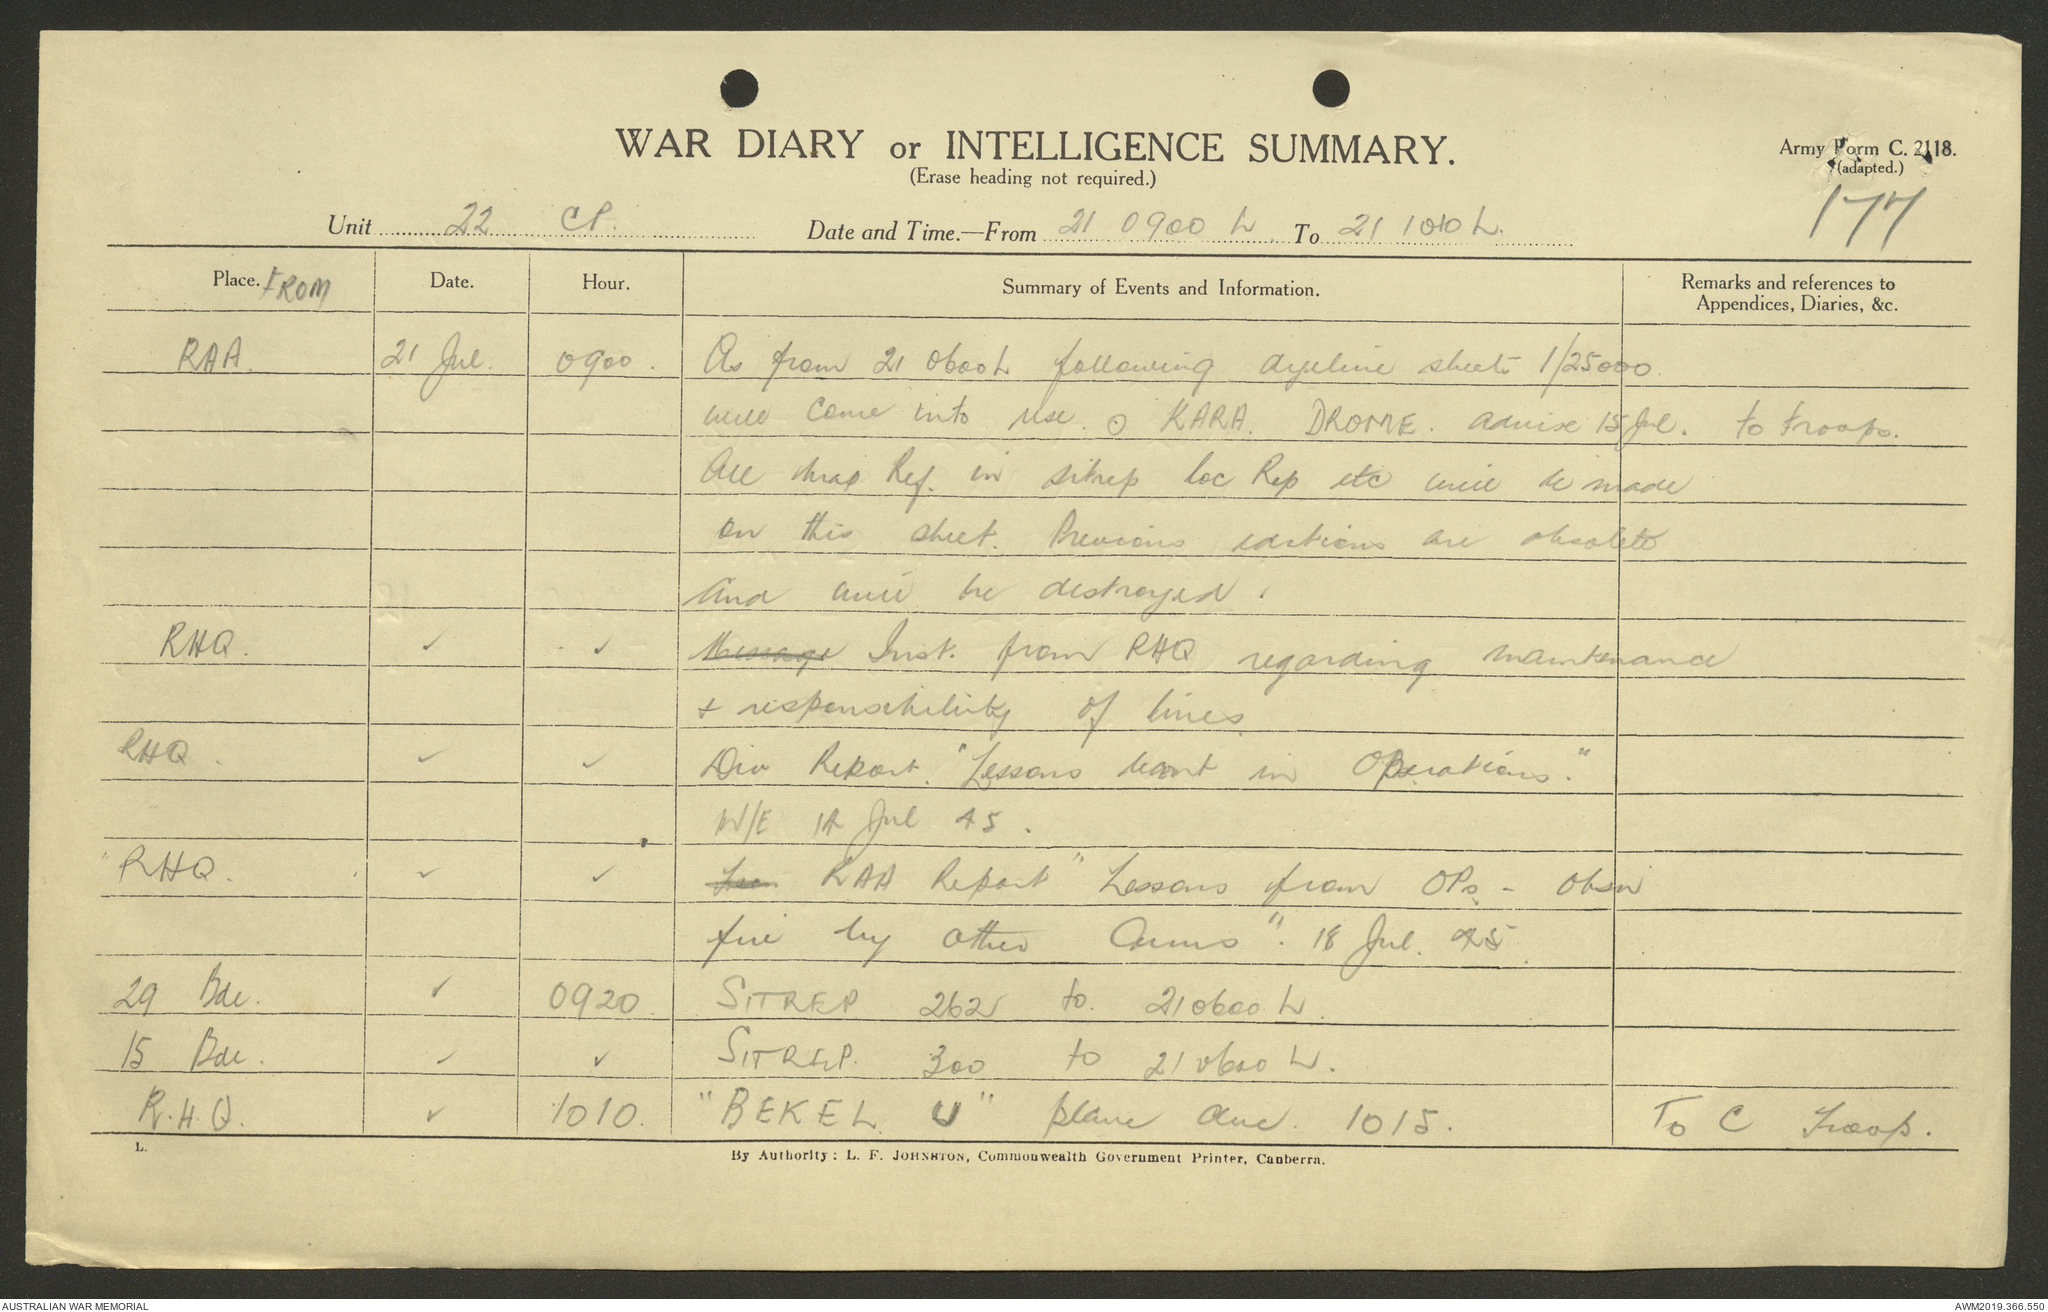 WAR DIARY or INTELLIGENCE SUMMARY.
(Erase heading not required.)
Army Form C. 2118.
(adapted.)
177
Unit 22 CP. Date and Time.—From 21 0900 L To 21 1010 L.
Place. FROM Date. Hour. Summary of Events and Information. Remarks and references to Appendices, Diaries, &c.
RAA. 21 Jul. 0900. As from 21 0600 L following dyeline sheets 1/25000
will come into use. KARA. DROME. advise 15 Jul. to troops.
All Map Ref. in sitrep loc Rep etc will be made
on this sheet. Previous editions are obsolete
and will be destroyed.
RHQ. ✓ ✓ Message Inst. from RHQ regarding maintenance
& responsibility of lines
RHQ. ✓ ✓ Div Report. "Lessons learnt in Operations."
W/E 14 Jul 45.
"RHQ. ✓ ✓ RAA Report "Lessons from OPs - obsn
fire by other Arms". 18 Jul. 45.
29 Bde. ✓ 0920 SITREP 262 to 21 0600 L.
15 Bde. ✓ ✓ SITREP. 300 to 21 0600 L.
R.H.Q. ✓ 1010. "BEKEL U" plane due. 1015. To C Troop.
L.
By Authority: L. F. JOHNSTON, Commonwealth Government Printer, Canberra.
AUSTRALIAN WAR MEMORIAL
AWM2019.366.550